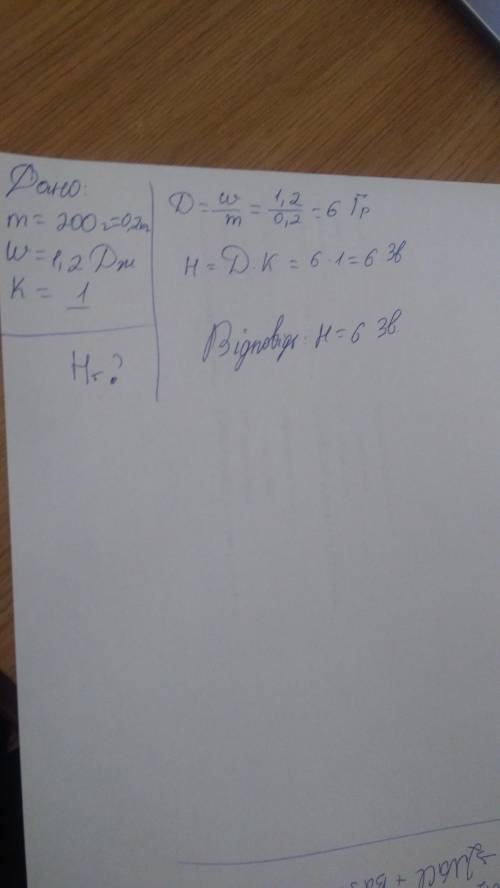 Дано:
m = 200 г = 0,2 кг
W = 1,2 Дж
K = 1
H - ?
D = W/m = 1,2/0,2 = 6 Гр
H = D · K = 6 · 1 = 6 Зв
Відповідь: H = 6 Зв.
NaCl + Ba